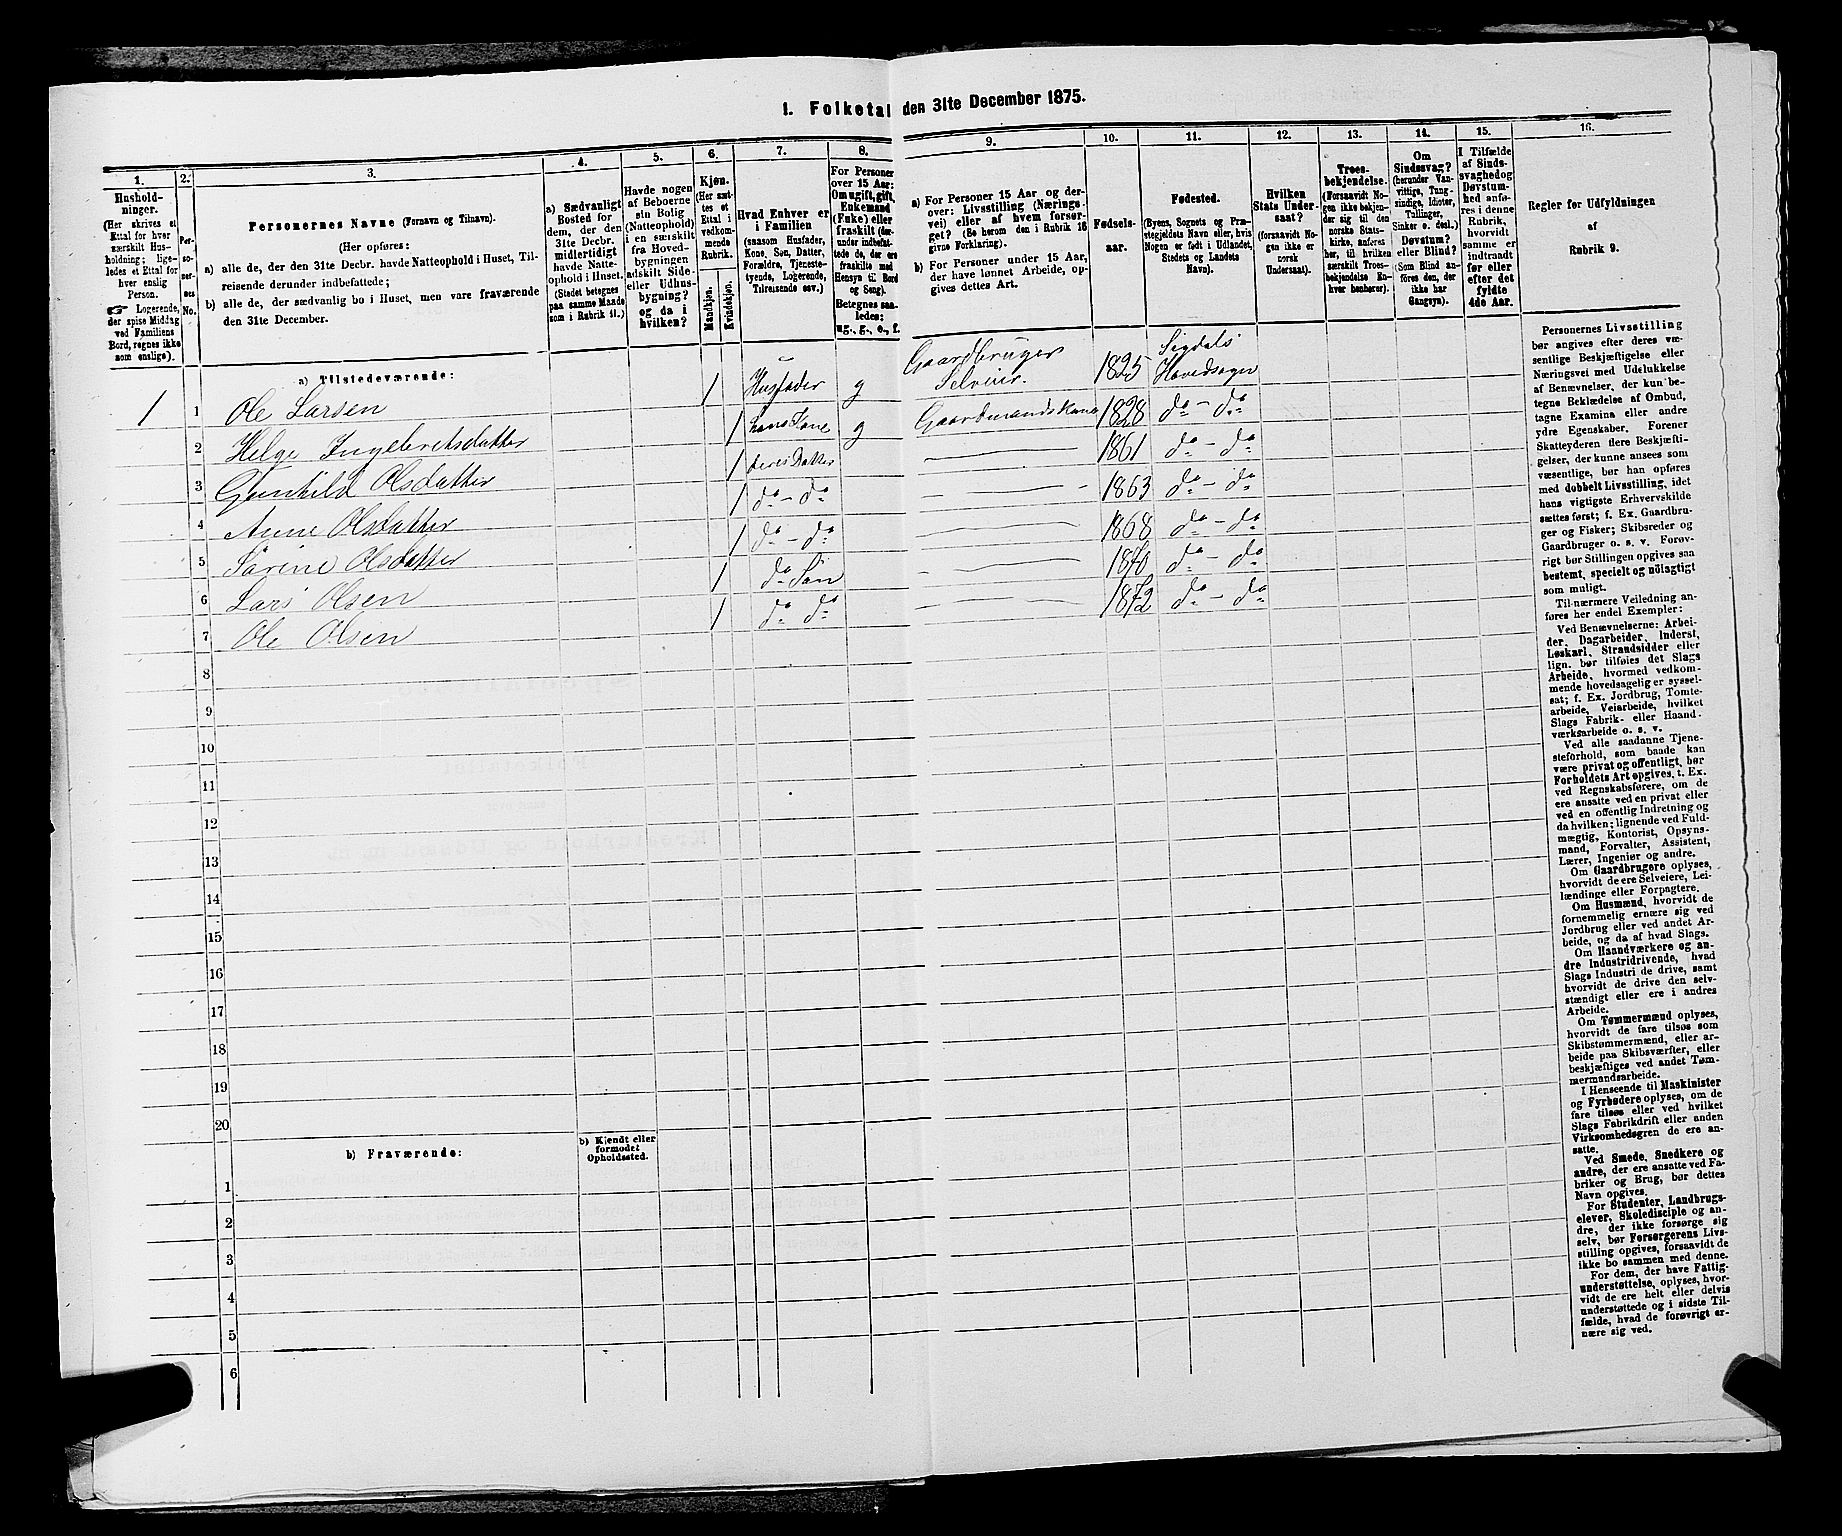 1. Folketal den 31te December 1875.
1.
Hushold-
ninger.
(Her skrives et
Ettal for hver
særskilt Hus-
holdning; lige-
ledes et Ettal for
hver enslig
Person.
☞ Logerende,
der spise Middag
ved Familiens
Bord, regnes ikke
som enslige).
2.
Per-
so-
ner-
nes
No.
3.
Personernes Navne (Fornavn og Tilnavn).
(Her opføres:
a) alle de, der den 31te Decbr. havde Natteophold i Huset, Til-
reisende derunder indbefattede;
b) alle de, der sædvanlig bo i Huset, men vare fraværende
den 31te December.
4.
a) Sædvanligt
Bosted for
dem, der den
31te Decbr.
midlertidigt
havde Natte-
ophold i Huset.
(Stedet betegnes
paa samme Maade
som i Rubrik 11.)
5.
Havde nogen
af Beboerne
sin Bolig
(Natteophold)
i en særskilt
fra Hoved-
bygningen
adskilt Side-
eller Udhus-
bygning?
og da i
hvilken?
6.
Kjøn.
(Her sæt-
tes et
Ettal i
vedkom-
mende
Rubrik.
Mandkjøn.
Kvindekjøn.
7.
Hvad Enhver er
i Familien
(saasom Husfader,
Kone, Søn, Datter,
Forældre, Tjeneste-
tyende, Logerende,
Tilreisende osv.)
8.
For Personer
over 15 Aar:
Om ugift, gift,
Enkemand
(Enke) eller
fraskilt (der-
under indbefat-
tede de, der ere
fraskilte med
Hensyn til Bord
og Seng).
Betegnes saa-
ledes:
ug., g., e., f.
9.
a) For Personer 15 Aar og der-
over: Livsstilling (Nærings-
vei) eller af hvem forsør-
get? (Se herom den i Rubrik 16
givne Forklaring).
b) For Personer under 15 Aar,
der have lønnet Arbeide, op-
gives dettes Art.
10.
Fødsels-
aar.
11.
Fødested.
(Byens, Sognets og Præ-
stegjeldets Navn eller, hvis
Nogen er født i Udlandet,
Stedets og Landets
Navn).
12.
Hvilken
Stats Under-
saat?
(forsaavidt No-
gen ikke er
norsk
Undersaat).
13.
Troes-
bekjendelse.
(Forsaavidt No-
gen ikke bekjen-
der sig til den
norske Stats-
kirke, anføres
her, til hvilken
særskilt Troes-
bekjendelse En-
hver henhører).
14.
Om
Sindssvag?
(herunder Van-
vittige, Tung-
sindige, Idioter,
Tullinger,
Sinker o. desl.)
Døvstum?
eller Blind?
(Som Blind an-
føres den, der
ikke har
Gangsyn).
15.
I Tilfælde
af Sinds-
svaghed og
Døvstum-
hed anfø-
res i denne
Rubrik,
hvorvidt
samme er
indtraadt
før eller
efter det
fyldte
4de Aar.
16.
Regler for Udfyldningen
af
Rubrik 9.
a) Tilstedeværende:
1 1 Ole Larsen 1 Husfader g Gaardbruger Selveier. 1825 Sigdals Hovedsogn
2 Helge Ingebretsdatter 1 hans Kone g Gaardmandskone 1828 do - do
3 Gunhild Olsdatter 1 deres Datter 1861 do - do
4 Anne Olsdatter 1 do - do 1863 do - do
5 Sørine Olsdatter 1 do - do 1868 do - do
6 Lars Olsen 1 do Søn 1870 do - do
7 Ole Olsen 1 do do 1872 do - do
8
9
10
11
12
13
14
15
16
17
18
19
20
b) Fraværende:
b) Kjendt eller
formodet
Opholdssted.
1
2
3
4
5
6
Personernes Livsstilling
bør angives efter deres væ-
sentlige Beskjæftigelse eller
Næringsvei med Udelukkelse
af Benævnelser, der kun be-
tegne Beklædelse af Ombud,
tagne Examina eller andre
ydre Egenskaber. Forener
Skatteyderen flere Beskjæfti-
gelser, der kunne ansees som
væsentlige, bør han opføres
med dobbelt Livsstilling, idet
hans vigtigste Erhvervskilde
sættes først; f. Ex. Gaardbru-
ger og Fisker; Skibsreder og
Gaardbruger o. s. v. Forøv-
rigt bør Stillingen opgives saa
bestemt, specielt og nöiagtigt
som muligt.
Til nærmere Veiledning an-
føres her endel Exempler:
Ved Benævnelserne: Arbei-
der, Dagarbeider, Inderst,
Løskarl, Strandsidder eller
lign. bør tilføies det Slags
Arbeide, hvormed vedkom-
mende hovedsagelig er syssel-
sat; f. Ex. Jordbrug, Tomte-
arbeide, Veiarbeide, hvilket
Slags Fabrik- eller Haand-
værksarbeide o. s. v.
Ved alle saadanne Tjene-
steforhold, som baade kan
være privat og offentligt, bør
Forholdets Art opgives, t. Ex.
ved Regnskabsførere, om de
ere ansatte ved en privat eller
ved en offentlig Indretning og
da hvilken; lignende ved Fuld-
mægtig, Kontorist, Opsyns-
mand, Forvalter, Assistent,
Lærer, Ingeniør og andre.
Om Gaardbrugere oplyses,
hvorvidt de ere Selveiere, Lei-
lændinge eller Forpagtere.
Om Husmænd, hvorvidt de
fornemmelig ernære sig ved
Jordbrug eller ved andet Ar-
beide, og da af hvad Slags.
Om Haandværkere og an-
dre Industridrivende, hvad
Slags Industri de drive, samt
hvorvidt de drive den selv-
stændigt eller ere i andres
Arbeide.
Om Tømmermænd oplyses,
hvorvidt de fare tilsøs som
Skibstømmermænd, eller ar-
beide paa Skibsværfter, eller
beskjæftiges ved andet Tøm-
mermandsarbeide.
I Henseende til Maskinister
og Fyrbødere oplyses, om de
fare tilsøs eller ved hvilket
Slags Fabrikdrift eller anden
Virksomhedsgren de ere an-
satte.
Ved Smede, Snedkere og
andre, der ere ansatte ved Fa-
briker og Brug, bør dettes
Navn opgives.
For Studenter, Landbrugs-
elever, Skoledisciple og an-
dre, der ikke forsørge sig
selv, bør Forsørgerens Livs-
stilling opgives, forsaavidt de
ikke bo sammen med denne.
For dem, der have Fattig-
understøttelse, oplyses, hvor-
vidt de ere helt eller delvis
understøttede og i sidste Til-
fælde, hvad de forøvrigt er-
nære sig ved.